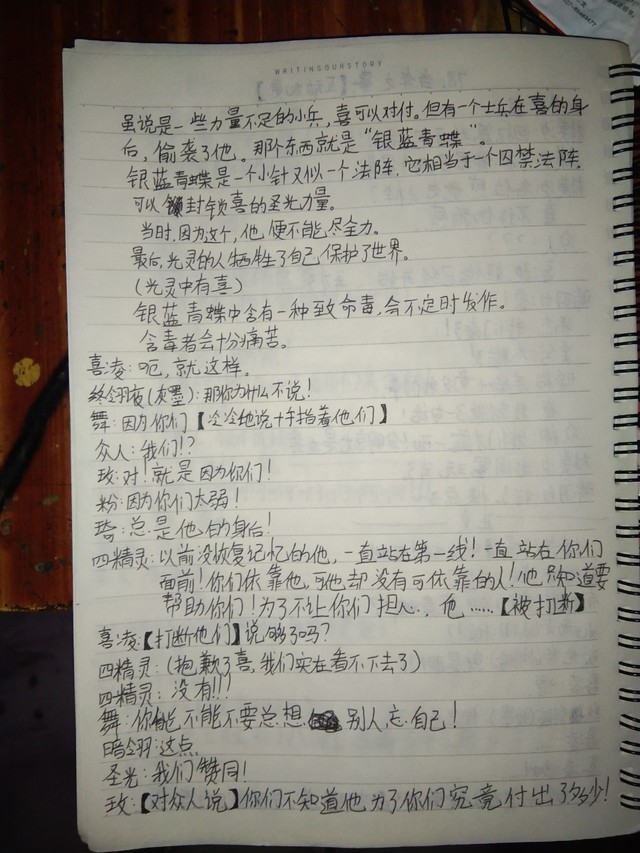 WRITINGOURSTORY
虽说是一些力量不足的小兵，喜可以对付。但有一个士兵在喜的身
后，偷袭了他。那个东西就是“银蓝青蝶”。
银蓝青蝶是一个小针又似一个法阵，它相当于一个囚禁法阵，
可以封锁喜的圣光力量。
当时，因为这个，他便不能尽全力。
最后，光灵的人牺牲了自己，保护了世界。
（光灵中有喜）
银蓝青蝶中含有一种致命毒，会不定时发作。
含毒者会十分痛苦。
喜凌：呃，就这样。
终翎夜（灰墨）：那你为什么不说！
舞：因为你们【冷冷地说+手指着他们】
众人：我们！？
玫：对！就是因为你们！
粉：因为你们太弱！
琦：总是他的身后！
四精灵：以前没恢复记忆的他，一直站在第一线！一直站在你们
面前！你们依靠他，可他却没有可依靠的人！他只知道要
帮助你们！为了不让你们担心，他……【被打断】
喜凌：【打断他们】说够了吗？
四精灵：（抱歉了喜，我们实在看不下去了）
四精灵：没有！！！
舞：你能不能不要总想别人，忘自己！
暗翎：这点
圣光：我们赞同！
玫：【对众人说】你们不知道他为了你们究竟付出了多少！